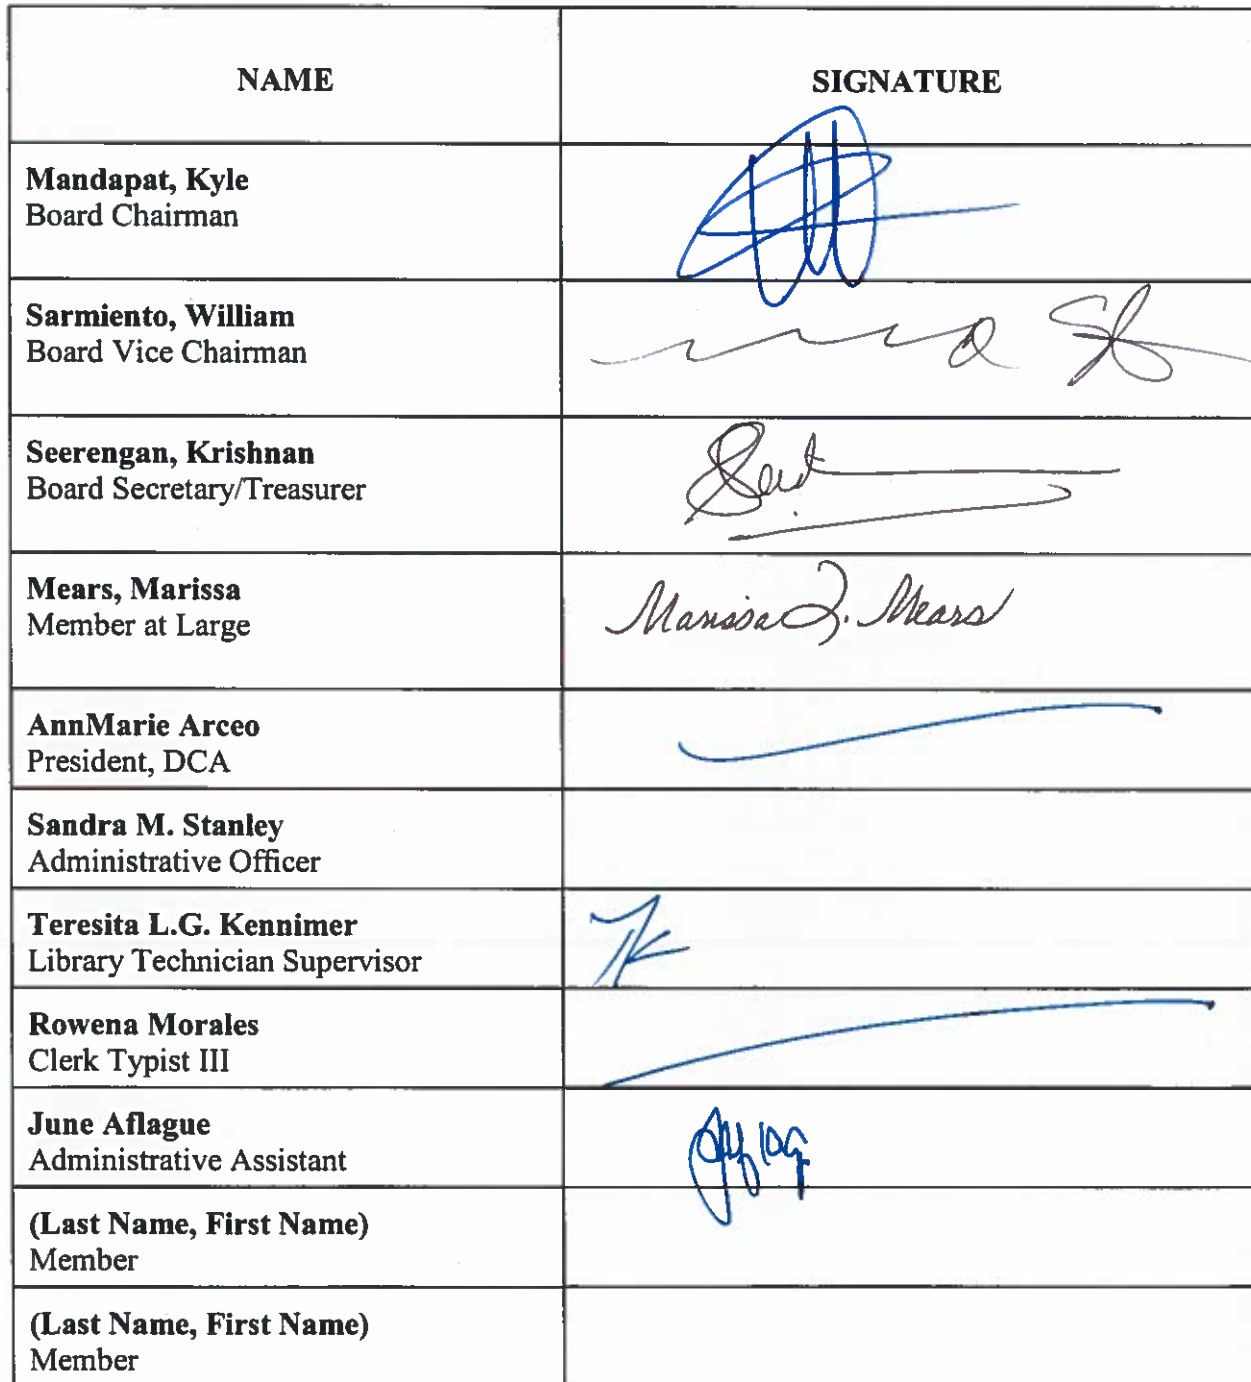 NAME
SIGNATURE
Mandapat, Kyle
Board Chairman
Sarmiento, William
Board Vice Chairman
Seerengan, Krishnan
Board Secretary/Treasurer
Mears, Marissa
Member at Large
Marissa Q. Mears
AnnMarie Arceo
President, DCA
Sandra M. Stanley
Administrative Officer
Teresita L.G. Kennimer
Library Technician Supervisor
TK
Rowena Morales
Clerk Typist III
June Aflague
Administrative Assistant
(Last Name, First Name)
Member
(Last Name, First Name)
Member